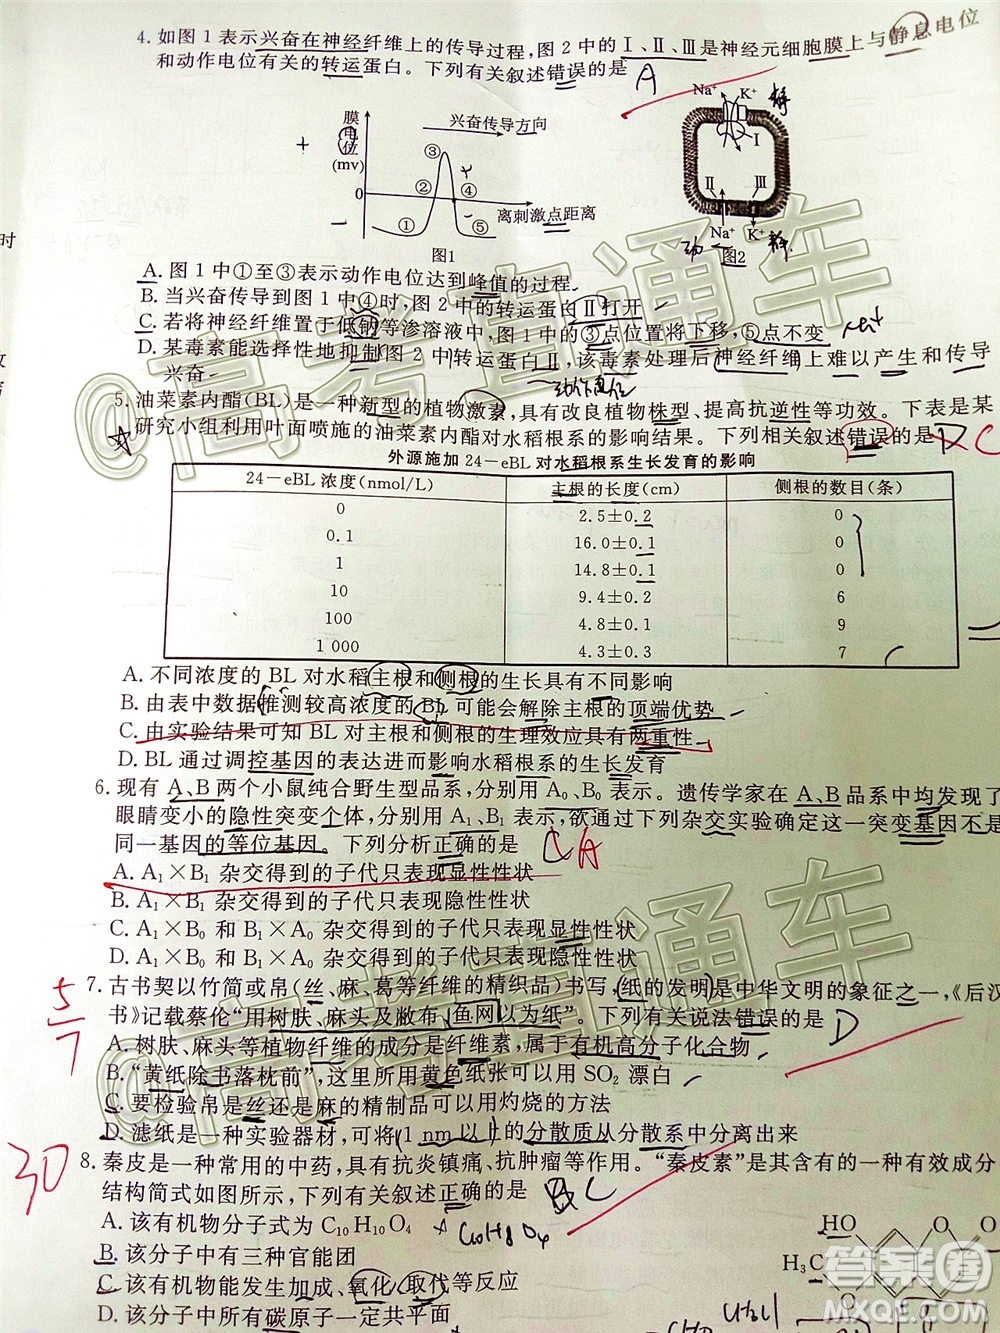 4. 如图 1 表示兴奋在神经纤维上的传导过程,图 2 中的Ⅰ、Ⅱ、Ⅲ是神经元细胞膜上与静息电位
和动作电位有关的转运蛋白。下列有关叙述错误的是 A
膜电位(mv)
兴奋传导方向
+
0
① ② ③ ④ ⑤
离刺激点距离
图1
Na⁺ K⁺ 静
Ⅰ
Ⅱ Ⅲ
动 Na⁺ K⁺ 静
图2
时
A. 图 1 中①至③表示动作电位达到峰值的过程
B. 当兴奋传导到图 1 中④时,图 2 中的转运蛋白Ⅱ打开
C. 若将神经纤维置于低钠等渗溶液中,图 1 中的③点位置将下移,⑤点不变
D. 某毒素能选择性地抑制图 2 中转运蛋白Ⅱ,该毒素处理后神经纤维上难以产生和传导
兴奋
动作电位
5. 油菜素内酯(BL)是一种新型的植物激素,具有改良植物株型、提高抗逆性等功效。下表是某
研究小组利用叶面喷施的油菜素内酯对水稻根系的影响结果。下列相关叙述错误的是 D C
外源施加 24－eBL 对水稻根系生长发育的影响
24－eBL 浓度(nmol/L) 主根的长度(cm) 侧根的数目(条)
0 2.5±0.2 0
0.1 16.0±0.1 0
1 14.8±0.1 0
10 9.4±0.2 6
100 4.8±0.1 9
1 000 4.3±0.3 7
A. 不同浓度的 BL 对水稻主根和侧根的生长具有不同影响
B. 由表中数据推测较高浓度的 BL 可能会解除主根的顶端优势
C. 由实验结果可知 BL 对主根和侧根的生理效应具有两重性
D. BL 通过调控基因的表达进而影响水稻根系的生长发育
6. 现有 A、B 两个小鼠纯合野生型品系,分别用 A₀、B₀ 表示。遗传学家在 A、B 品系中均发现了
眼睛变小的隐性突变个体,分别用 A₁、B₁ 表示,欲通过下列杂交实验确定这一突变基因不是
同一基因的等位基因。下列分析正确的是 C A
A. A₁×B₁ 杂交得到的子代只表现显性性状
B. A₁×B₁ 杂交得到的子代只表现隐性性状
C. A₁×B₀ 和 B₁×A₀ 杂交得到的子代只表现显性性状
D. A₁×B₀ 和 B₁×A₀ 杂交得到的子代只表现隐性性状
5/7
7. 古书契以竹简或帛(丝、麻、葛等纤维的精织品)书写,纸的发明是中华文明的象征之一,《后汉
书》记载蔡伦“用树肤、麻头及敝布、鱼网以为纸”。下列有关说法错误的是 D
A. 树肤、麻头等植物纤维的成分是纤维素,属于有机高分子化合物
B. “黄纸除书落枕前”,这里所用黄色纸张可以用 SO₂ 漂白
C. 要检验帛是丝还是麻的精制品可以用灼烧的方法
D. 滤纸是一种实验器材,可将(1 nm 以上)的分散质从分散系中分离出来
30
8. 秦皮是一种常用的中药,具有抗炎镇痛、抗肿瘤等作用。“秦皮素”是其含有的一种有效成分
结构简式如图所示,下列有关叙述正确的是 C
A. 该有机物分子式为 C₁₀H₁₀O₄ C₁₀H₈O₄
B. 该分子中有三种官能团
C. 该有机物能发生加成、氧化、取代等反应
D. 该分子中所有碳原子一定共平面
HO O O
H₃C
@高考直通车
@高考直通车
答案圈
MXQE.COM